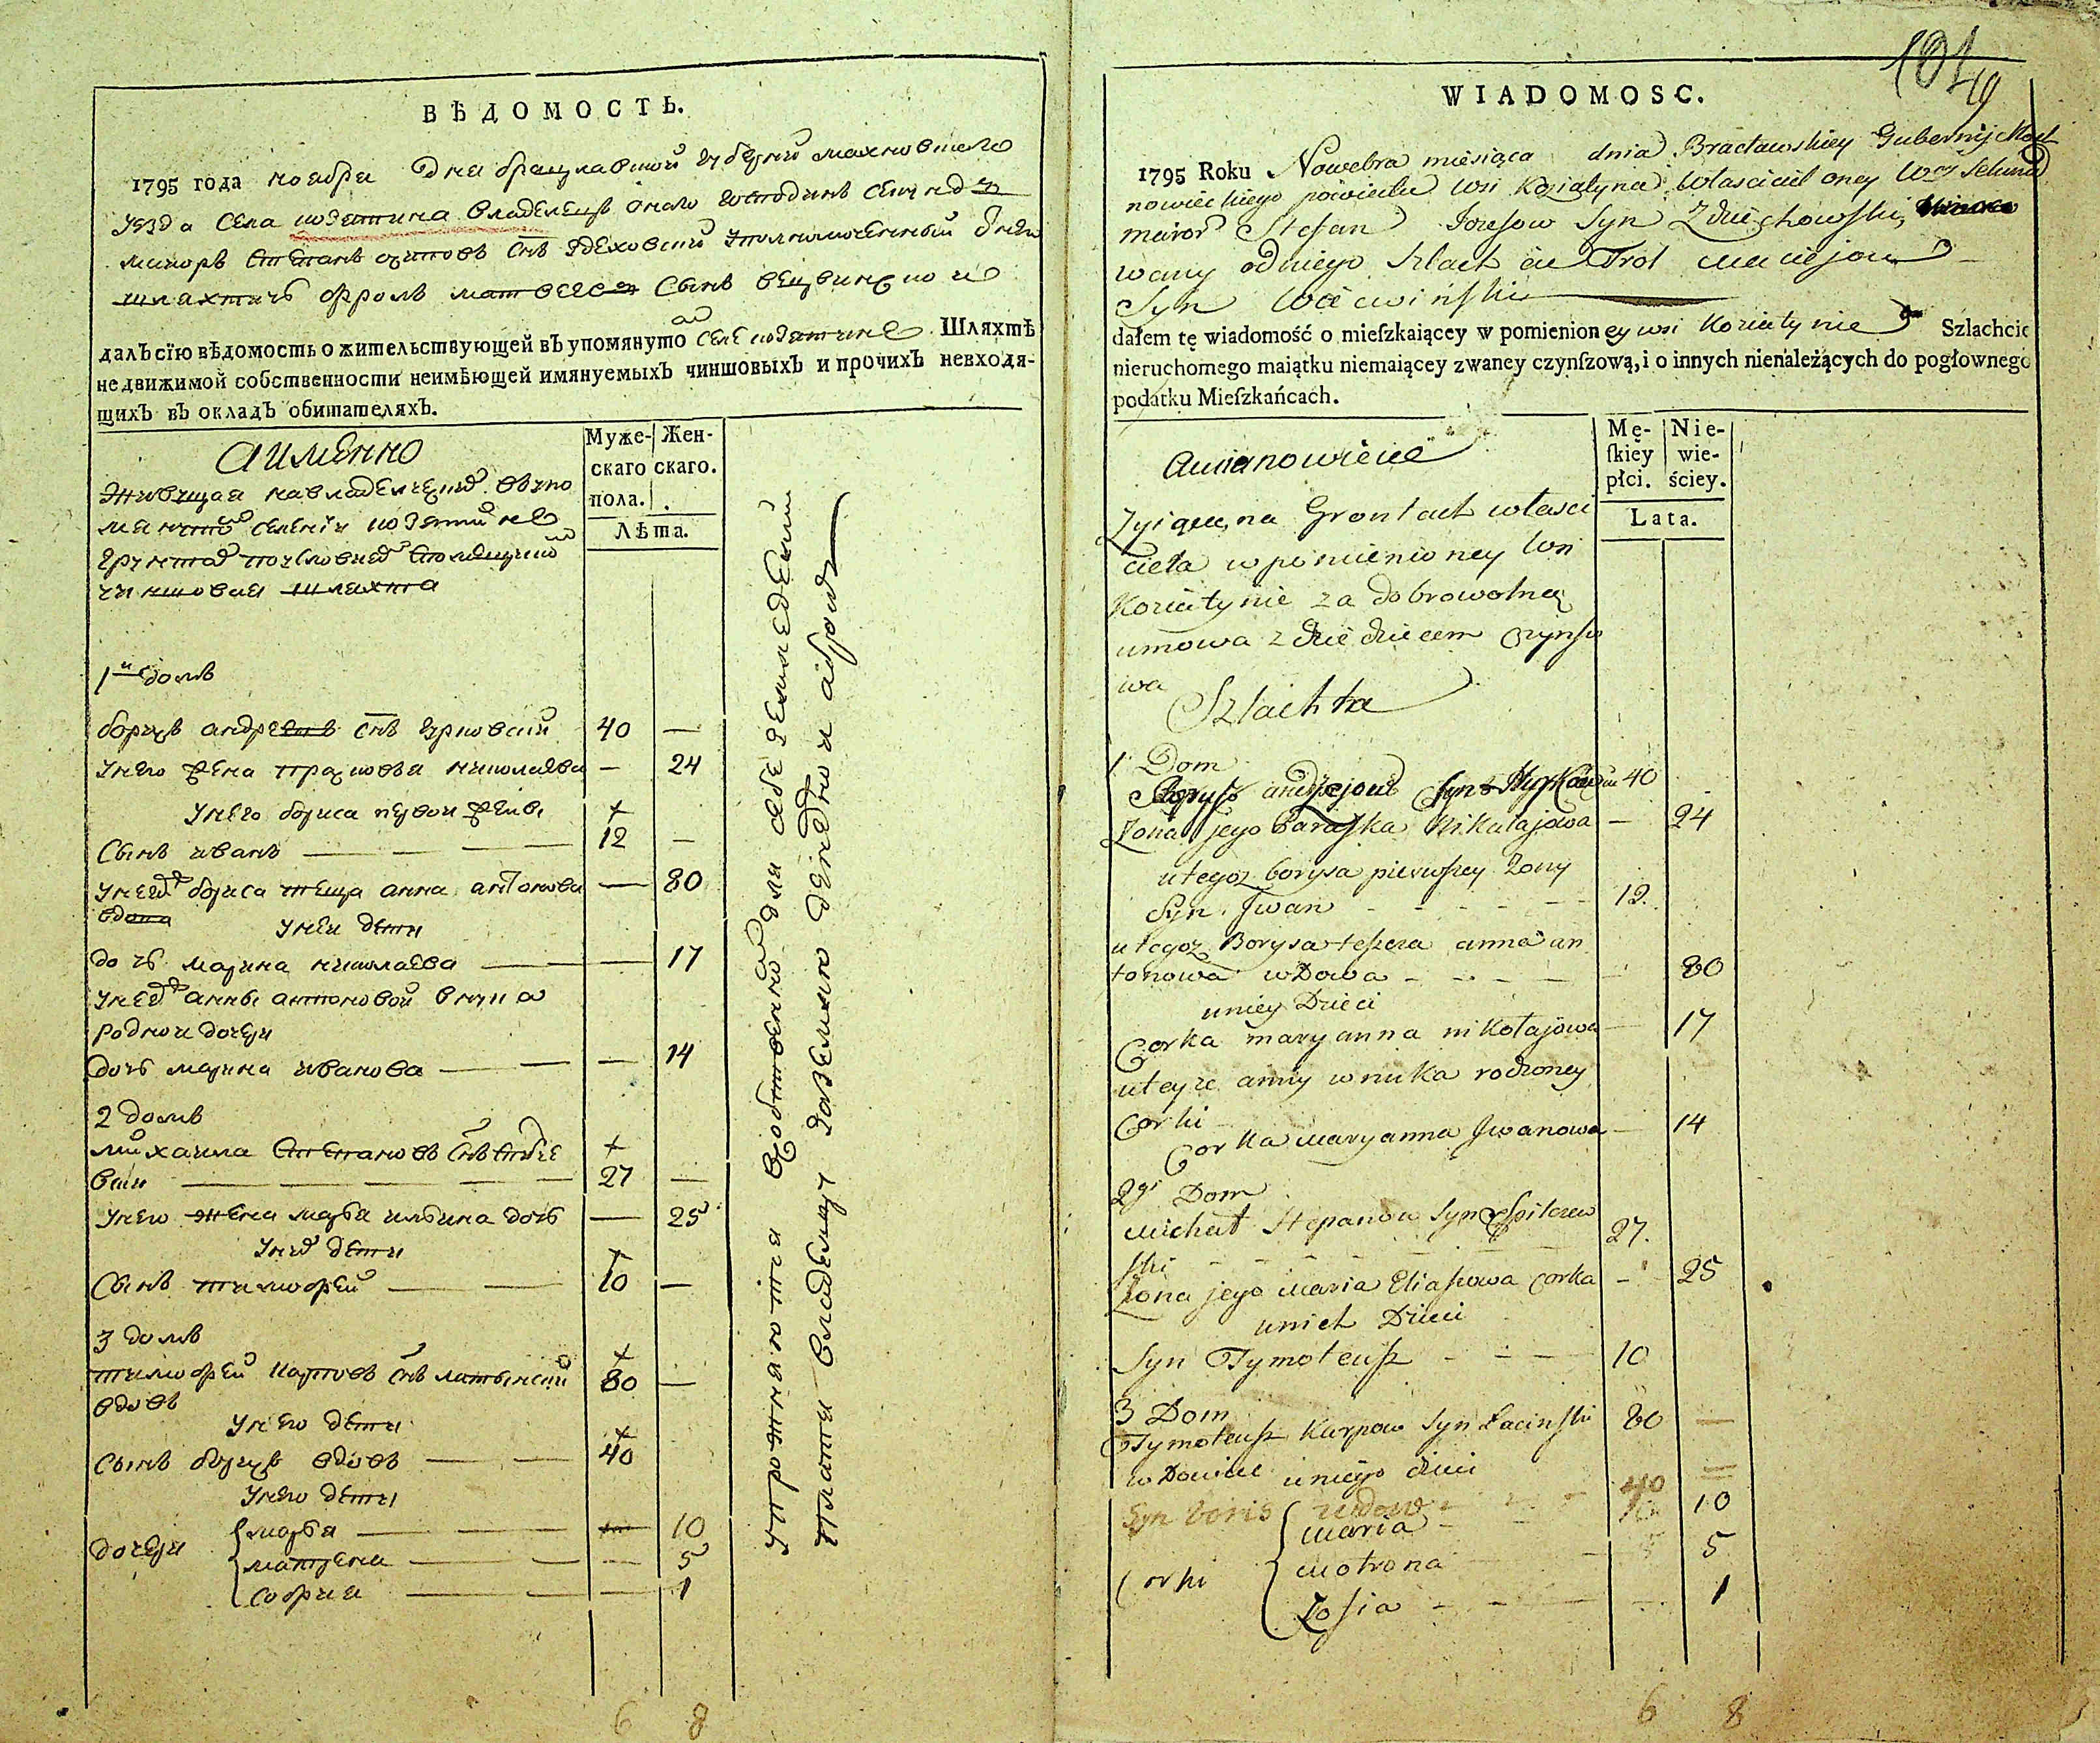 ВѢДОМОСТЬ.
1795 года ноября дня брацлавской губернии махновского
уезда села козятина владелец оного господинъ секунд
маиоръ степанъ осиповъ снъ здеховский уполномоченный от него
шляхтичъ фролъ матвеевъ сынъ
далъ сїю вѣдомость о жительствующей въ упомянутой селе козятине Шляхтѣ
недвижимой собственности неимѣющей имянуемыхъ чиншовыхъ и прочихъ невходя-
щихъ въ окладъ обитателяхъ.
а имянно
Муже- Жен-
скаго скаго.
пола.
Лѣта.
живущая на владелческих в упо
мянутой селении козятине
грунтах по условию с помещиком
чиншовая шляхта
1й домъ
борисъ андреевъ снъ 40 —
у него жена парасковья николаева — 24
у него бориса первой жены +
сынъ иванъ 12 —
у него ж бориса теща анна антонова — 80
вдова
у неи дети
дочь марина николаева — 17
у неи ж анны антоновой внука
родной дочери
дочь марина иванова — 14
2 домъ
михаила степановъ снъ +
27 —
у него жена марья ильина дочь — 25
у них дети +
сынъ тимофей 10 —
3 домъ
тимофей карповъ снъ латынский +
вдовъ 80 —
у него дети +
сынъ борисъ вдовъ 40
у него дети
марья 10
дочери матрена — 5
софия — 1
6 8
упражняются собственною для себя земледелии
платя владелцу за землю денежной оброкъ
104
WIADOMOSC.
1795 Roku Nowebra miesiąca dnia Bracławskiey Gubernij Mach
nowieckiego powiectu wsi Koziatyna własciciel oney Wny Sekund
maior Stefan Jozefow Syn Zdziechowski,
wany od niego Szlachcic Frol Maciejow
Syn
dałem tę wiadomość o mieſzkaiącey w pomienioney wsi Koziatynie Szlachcic
nieruchomego maiątku niemaiącey zwaney czynſzową, i o innych nienależących do pogłownego
podatku Mieſzkańcach.
a mianowicie
Mę- Nie-
ſkiey wie-
płci. ściey.
Lata.
Zyiące, na Grontach własci
ciela w pomienioney wsi
Koziatynie za dobrowolną
umowa z dziedzicem czynſzo
wa
Szlachta
1 Dom
Borys andrzejow Syn 40
Zona jego Paraſka Nikołajowa — 24
u tegoz Borysa pierwſzey Zony
Syn Jwan 12
u tegoz Borysa teſzcza anna an
tonowa wdowa 80
u niey Dzieci
Corka maryanna nikołajowa 17
u teyze anny wnuka rodzoney
Corki
Corka maryanna Jwanowa — 14
2gi Dom
Michał Stepanow Syn Spiczew
ſki 27.
Zona jego Maria Eliaſzowa corka — 25
u nich Dzieci
Syn Tymoteuſz 10
3 Dom
Tymoteuſz Karpow Syn Łacinſki 80 —
wdowiec u niego dzieci
Syn boris wdow 40
maria 10
Corki motrona 5
Zofia 1
6 8